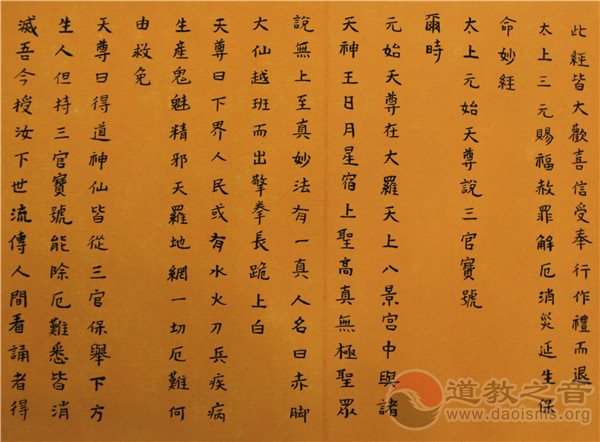 此經皆大歡喜信受奉行作禮而退
太上三元賜福赦罪解厄消災延生保
命妙經
太上元始天尊說三官寶號
爾時
元始天尊在大羅天上八景宮中與諸
天神王日月星宿上聖高真無極聖眾
說無上至真妙法有一真人名曰赤脚
大仙越班而出擎拳長跪上白
天尊曰下界人民或有水火刀兵疾病
生產鬼魅精邪天羅地網一切厄難何
由救免
天尊曰得道神仙皆從三官保舉下方
生人但持三官寶號能除厄難悉皆消
滅吾今授汝下世流傳人間看誦者得
道教之音
www.daoisms.org